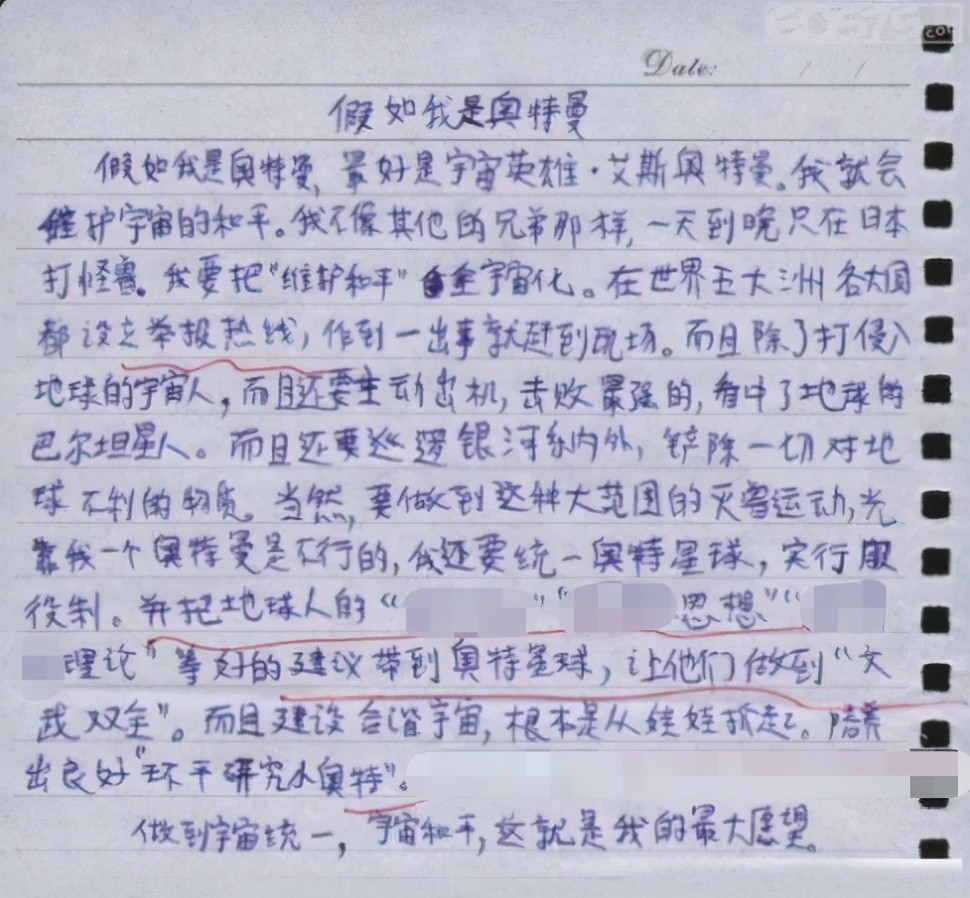 Date:
假如我是奥特曼
假如我是奥特曼，最好是宇宙英雄·艾斯奥特曼。我就会
维护宇宙的和平。我不像其他的兄弟那样，一天到晚只在日本
打怪兽。我要把“维护和平”全宇宙化。在世界五大洲各大国
都设立举报热线，作到一出事就赶到现场。而且除了打侵入
地球的宇宙人，而且还要主动出机，击败最强的，看中了地球的
巴尔坦星人。而且还要巡逻银河系内外，铲除一切对地
球不利的物质。当然，要做到这种大范围的灭害运动，光
靠我一个奥特曼是不行的，我还要统一奥特星球，实行服
役制。并把地球人的“”，“思想”“
理论”等好的建议带到奥特星球，让他们做到“文
武双全”。而且建设合谐宇宙，根本是从娃娃抓起。培养
出良好“环平研究小奥特”。
做到宇宙统一，宇宙和平，这就是我的最大愿望。